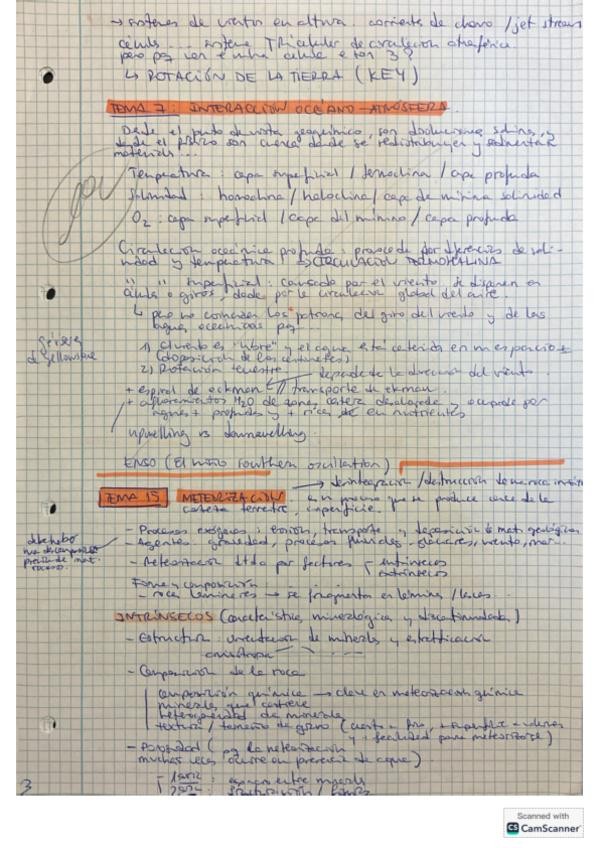 → sistemas de viento en altura. corriente de chorro / jet stream
célula ... sistema Tricelular de circulación atmosférica.
pero por qué célula 3?
↳ ROTACIÓN DE LA TIERRA (KEY)
TEMA 7: INTERACCIÓN OCÉANO-ATMÓSFERA.
Desde el punto de vista geoquímico, son disoluciones salinas, y
desde el físico son cuerca donde se redistribuyen y sedimentan
materiales...
Temperatura: capa superficial / termoclina / capa profunda
Salinidad: homoclina / haloclina / capa de mínima salinidad
O2: capa superficial / capa del mínimo / capa profunda
Circulación oceánica profunda: provocada por diferencias de sali-
nidad y temperatura CIRCULACIÓN TERMOHALINA
" " superficial: causada por el viento. se disponen en
células o giros, dada por la circulación global del aire.
↳ pero no coinciden los patrones del giro del viento y de las
aguas oceánicas pq...
Géiseres
de Yellowstone
1) el viento es "libre" y el agua está contenida en un espacio
(disposición de los continentes)
2) Rotación terrestre depende de la dirección del viento.
+ espiral de eckman // transporte de ekman.
+ afloramientos H2O de zonas costera desalojada y ocupada por
aguas + profundas y + ricas en nutrientes
upwelling vs downwelling
ENSO (El niño southern oscillation)
→ desintegración / destrucción de una roca
TEMA 15 METEORIZACIÓN es un proceso que se produce cerca de la
corteza terrestre, superficie.
- Procesos exógenos: erosión, transporte y deposición de mat. geológicos
- Agentes: gravedad, procesos fluviales, glaciares, viento, mar...
- Meteorización ltda por factores intrínsecos
extrínsecos
Forma y composición:
- rocas laminares → se fragmenta en láminas / lascas...
INTRÍNSECOS (características mineralógicas y discontinuidades)
- Estructura: orientación de minerales y estratificación
anisótropa
- Composición de la roca
composición química → clave en meteorización química
minerales que contiene
heterogeneidad de minerales
textura / tamaño de grano (cuanto + fino, + superficie
y + facilidad para meteorizarse)
- Porosidad (pq la meteorización
muchas veces ocurre en presencia de agua)
- 1aria: espacio entre minerales
2aria:
3
Scanned with
CS CamScanner